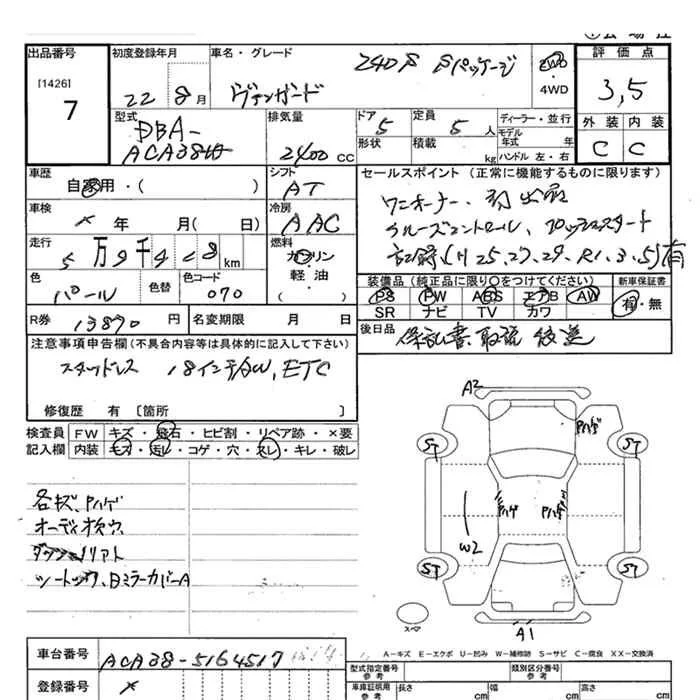 出品番号
[1426]
7
初度登録年月
22 8月
車名・グレード
ヴァンガード 240S Sパッケージ
2WD
・
4WD
評価点
3,5
外装 内装
C C
型式
DBA-
ACA38W
排気量
2400 CC
ドア
5
形状
定員
5 人
積載
kg
ディーラー・並行
モデル
年式 年
ハンドル 左・右
車歴
自家用・( )
シフト
AT
セールスポイント (正常に機能するものに限ります)
ワンオーナー、初出品
クルーズコントロール、プッシュスタート
記録(H25,27,29,R1,3,5)有
車検
年 月( 日)
冷房
AAC
走行
5万9千4 8km
燃料
ガソリン
軽・油
( )
色
パール
色替
色コード
070
装備品(純正品に限り○をつけてください)
新車保証書
PS PW ABS エアB AW
有・無
SR ナビ TV カワ
R券
13870 円
名変期限 月 日
後日品
保証書、取説 後送
注意事項申告欄(不具合内容等は具体的に記入して下さい)
スタッドレス 18インチAW,ETC
修復歴 有 [箇所 ]
検査員
記入欄
FW キズ・飛石・ヒビ割・リペア跡・×要
内装 キズ・汚レ・コゲ・穴・スレ・キレ・破レ
各キズ、Pハゲ
オーディオ換ウ
A2
Pハゲ
ST ST
ハゲ Pハゲ
W2
ST ST
スペア
A1
A-キズ E-エクボ U-凹み W-補修跡 S-サビ C-腐食 XX-交換済
車台番号
ACA38-5164517
登録番号
型式指定番号
参考
類別区分番号
参考
車庫証明用
参考
長さ cm
幅 cm
高さ cm